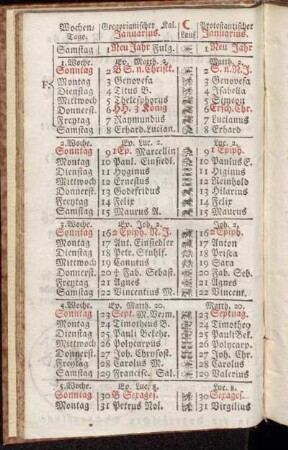 Wochen- Gregorianischer Kal. C Protestantischer
Tage. Januarius. Lauf Januarius.
Samstag 1 Neu Jahr Fulg. 1 Neu Jahr
1. Woche. Ev. Matth. 2. Matth. 2.
Sonntag 2 B S. n. Christt. 2 S. n. N. J.
Montag 3 Genovefa 3 Genovefa
Dienstag 4 Titus B. 4 Isabella
Mittwoch 5 Thelesphorus 5 Simeon
Donnerst. 6 HH. 3. König 6 Ersch. Chr.
Freytag 7 Raymundus 7 Lucianus
Samstag 8 Erhard. Lucian. 8 Erhard
2. Woche. Ev. Luc. 2. Luc. 2.
Sonntag 9 1 Ep. Marcellin 9 1 Epiph.
Montag 10 Paul. Einsiedl. 10 Paulus E.
Dienstag 11 Hyginus 11 Higinus
Mittwoch 12 Ernestus 12 Reinhold
Donnerst. 13 Godefridus 13 Hilarius
Freytag 14 Felix 14 Felix
Samstag 15 Maurus A. 15 Maurus
3. Woche. Ev. Joh. 2. Joh. 2.
Sonntag 16 2 Epiph. N. J. 16 2 Epiph.
Montag 17 Ant. Einsiedler 17 Anton
Dienstag 18 Petr. Stuhlf. 18 Prisca
Mittwoch 19 Canutus 19 Sara
Donnerst. 20 + Fab. Sebast. 20 Fab. Seb.
Freytag 21 Agnes 21 Agnes
Samstag 22 Vincentius M. 22 Vincent.
4. Woche. Ev. Matth. 20. Matth. 20.
Sonntag 23 Sept. M. Verm. 23 Septuag.
Montag 24 Timotheus B. 24 Timotheo
Dienstag 25 Pauli Bekehr. 25 Pauli Bek.
Mittwoch 26 Polycarpus 26 Polycarp.
Donnerst. 27 Joh. Chrysost. 27 Joh. Chr.
Freytag 28 Carolus M. 28 Carolus
Samstag 29 Francisc. Sal. 29 Valerius
5. Woche. Ev. Luc. 8. Luc. 8.
Sonntag 30 B Sexages. 30 Sexages.
Montag 31 Petrus Nol. 31 Virgilius